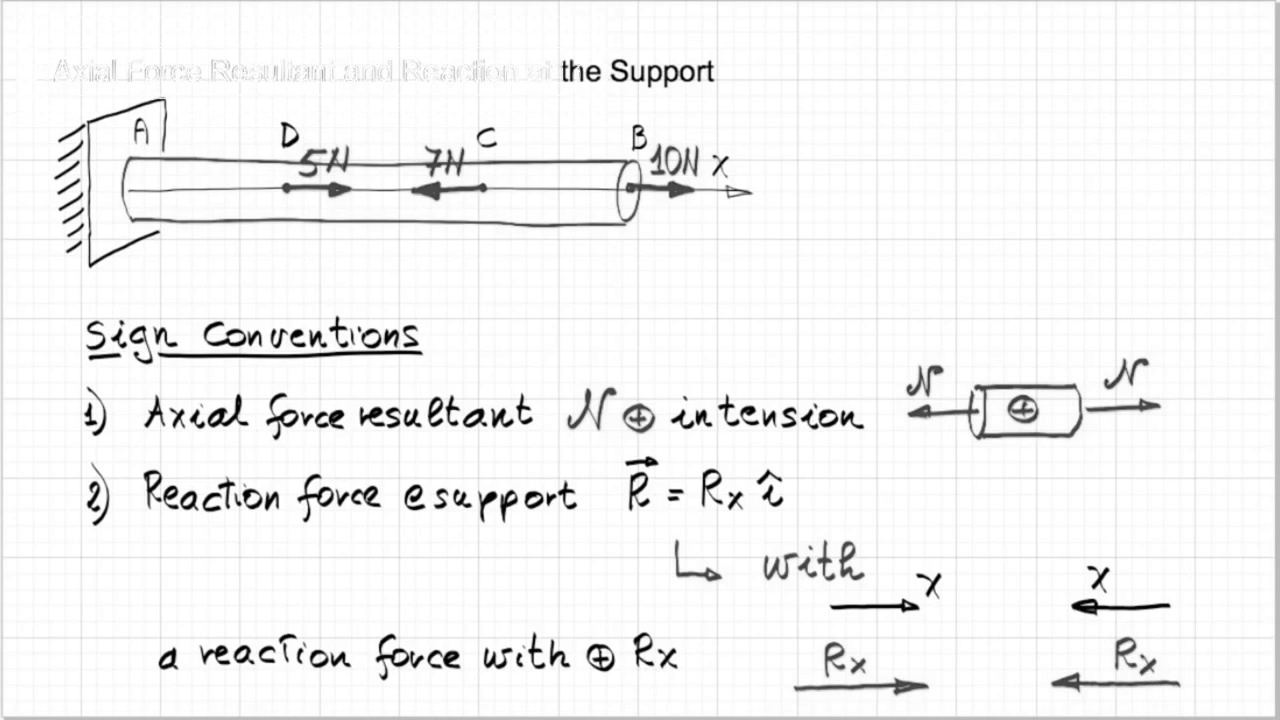 Axial Force Resultant and Reaction at the Support
A D 5N 7N C B 10N x
Sign Conventions
1) Axial force resultant N ⊕ in tension N ⊕ N
2) Reaction force @ support R⃗ = Rx î
↳ with x x
a reaction force with ⊕ Rx Rx Rx